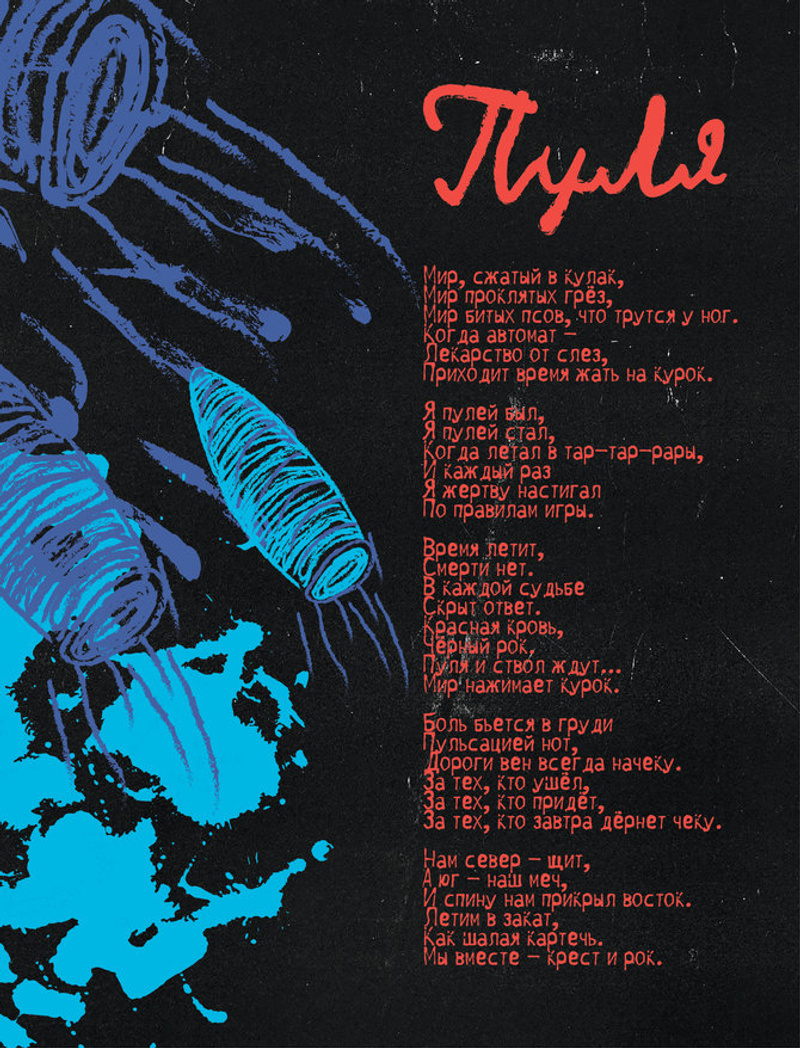 Пуля
Мир, сжатый в кулак,
Мир проклятых грёз,
Мир битых псов, что трутся у ног.
Когда автомат —
Лекарство от слез,
Приходит время жать на курок.
Я пулей был,
Я пулей стал,
Когда летал в тар-тар-рары,
И каждый раз
Я жертву настигал
По правилам игры.
Время летит,
Смерти нет.
В каждой судьбе
Скрыт ответ.
Красная кровь,
Чёрный рок,
Пуля и ствол ждут...
Мир нажимает курок.
Боль бьется в груди
Пульсацией нот,
Дороги вен всегда начеку.
За тех, кто ушёл,
За тех, кто придёт,
За тех, кто завтра дёрнет чеку.
Нам север — щит,
А юг — наш меч,
И спину нам прикрыл восток.
Летим в закат,
Как шалая картечь.
Мы вместе — крест и рок.